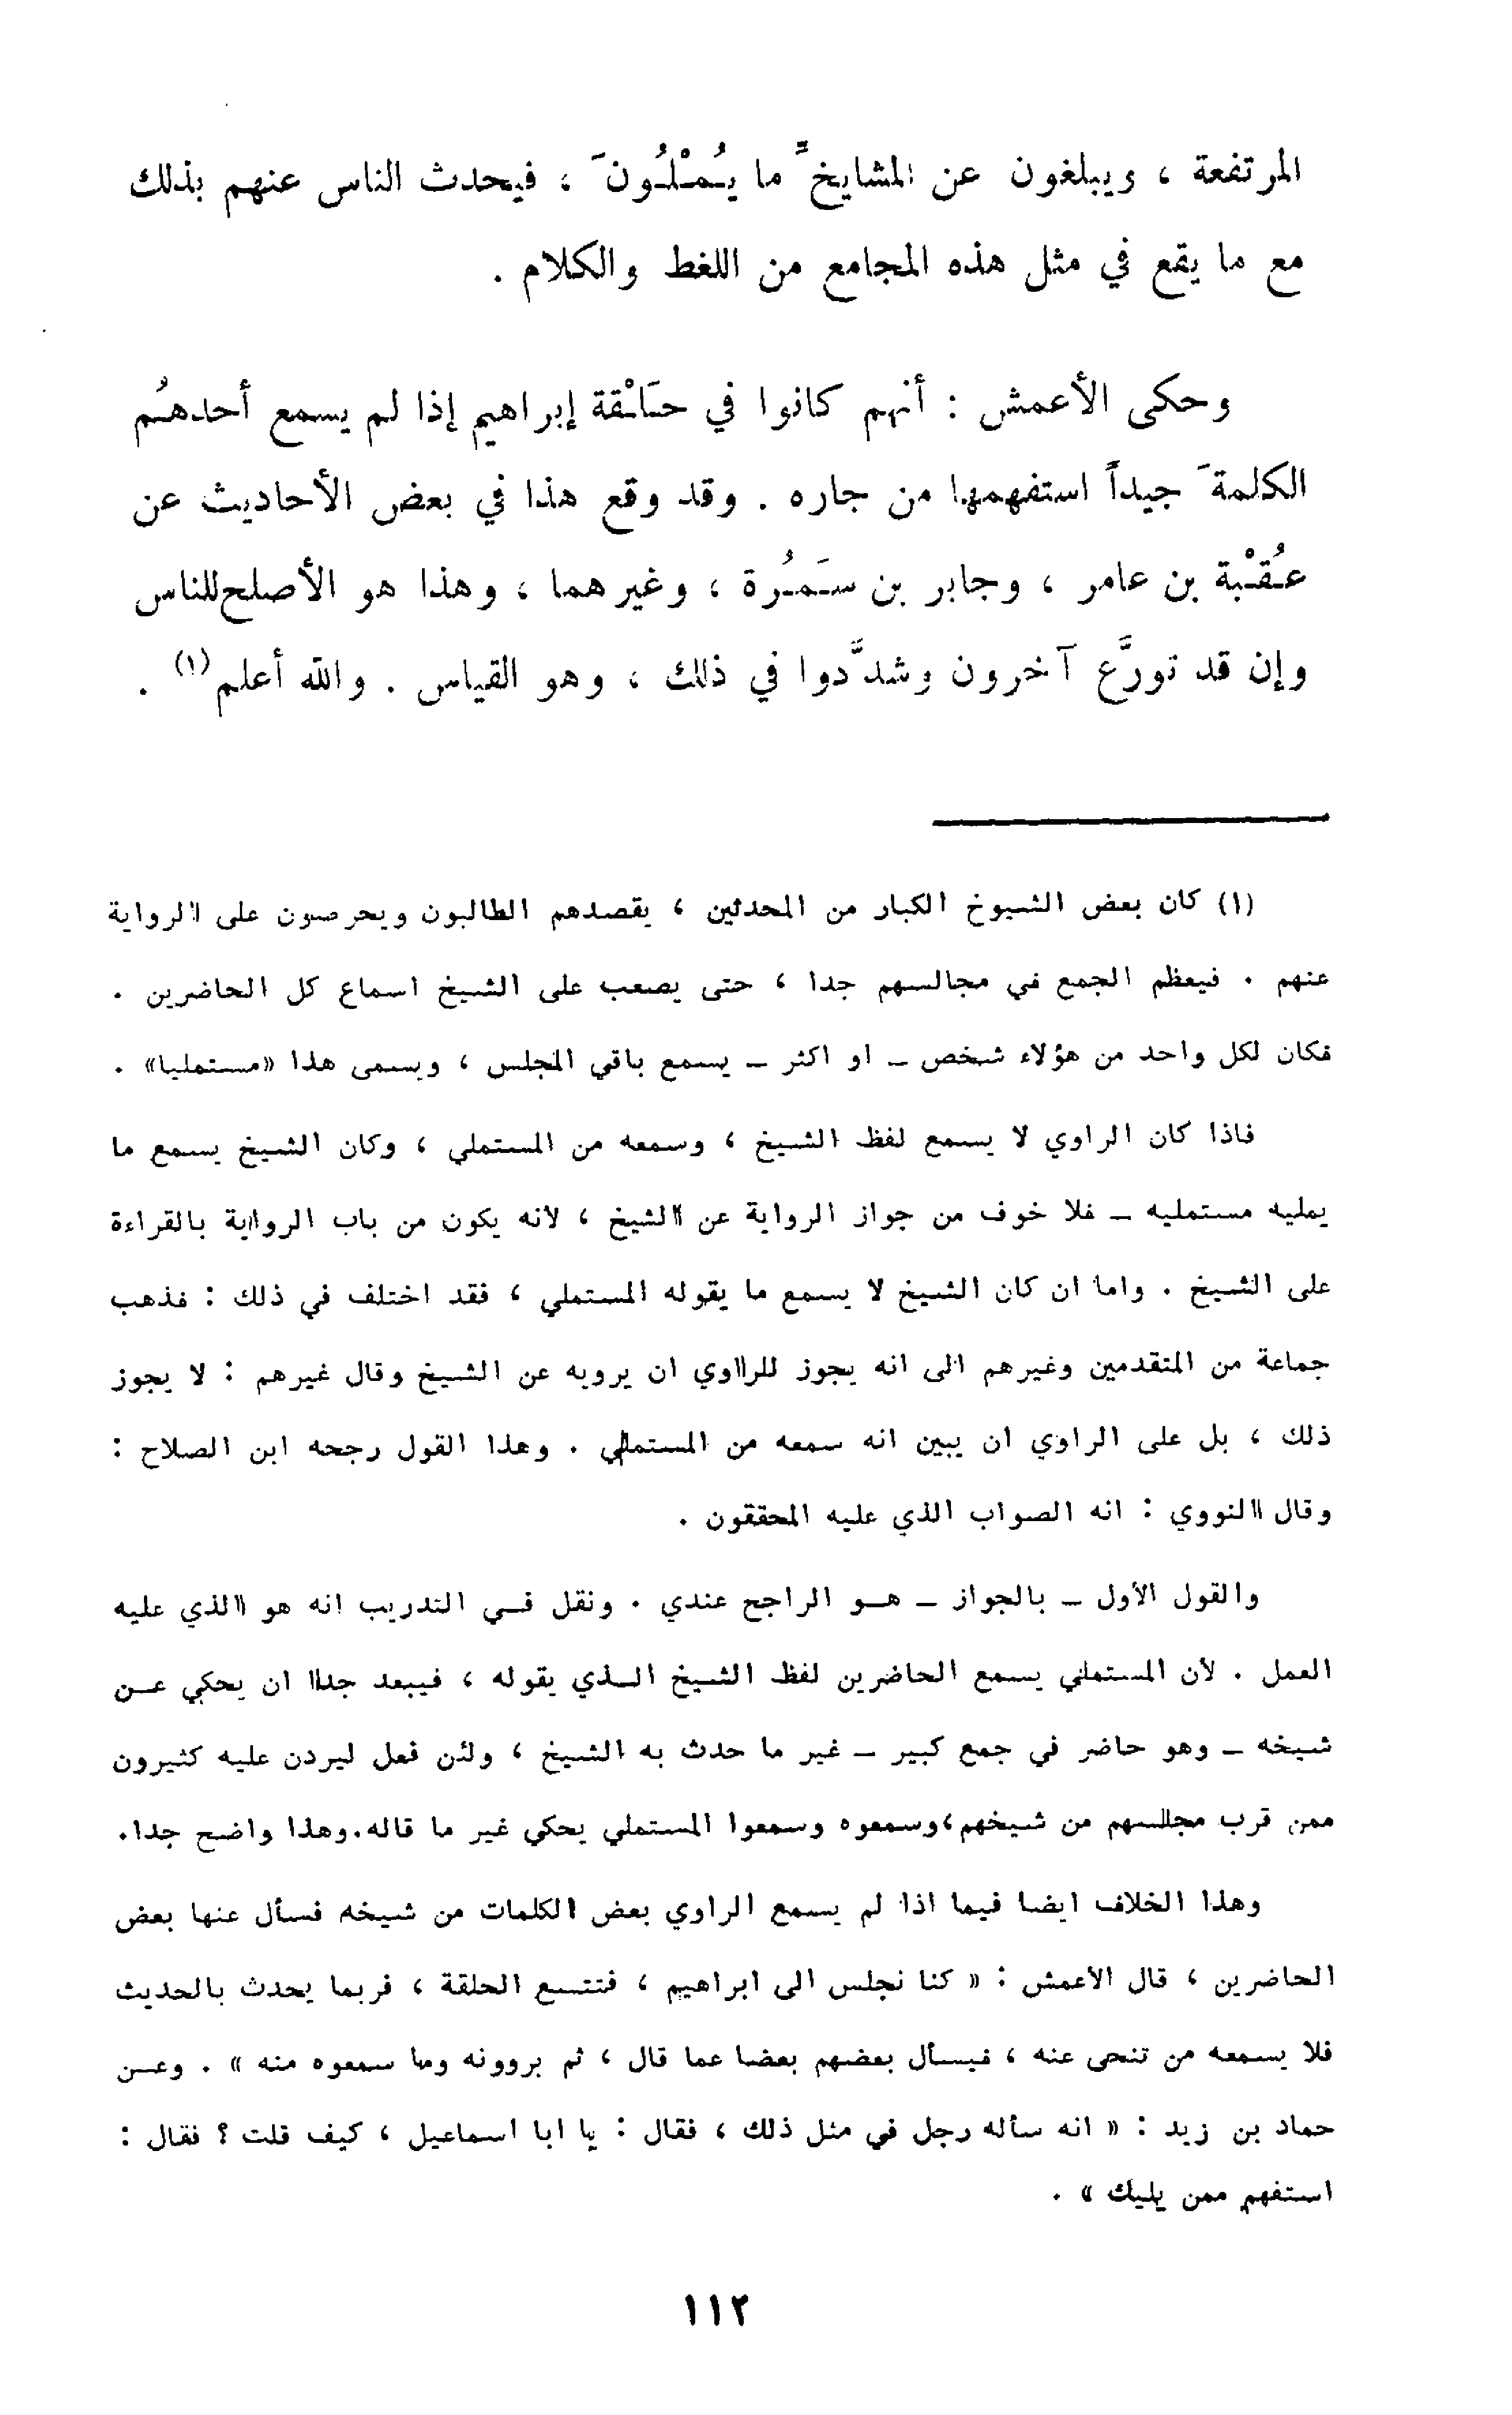 المرتفعة ، ويبلغون عن المشايخ ما يُمْلُونَ ، فيحدث الناس عنهم بذلك
مع ما يقع في مثل هذه المجامع من اللغط والكلام .
وحكى الأعمش : أنهم كانوا في حَلْقة إبراهيم إذا لم يسمع أحدهُم
الكلمةَ جيداً استفهمها من جاره . وقد وقع هذا في بعض الأحاديث عن
عُقْبة بن عامر ، وجابر بن سَمُرة ، وغيرهما ، وهذا هو الأصلح للناس
وإن قد تورَّع آخرون وشدَّدوا في ذلك ، وهو القياس . والله أعلم (١) .
(١) كان بعض الشيوخ الكبار من المحدثين ، يقصدهم الطالبون ويحرصون على الرواية
عنهم . فيعظم الجمع في مجالسهم جدا ، حتى يصعب على الشيخ اسماع كل الحاضرين .
فكان لكل واحد من هؤلاء شخص – او اكثر – يسمع باقي المجلس ، ويسمى هذا «مستمليا» .
فاذا كان الراوي لا يسمع لفظ الشيخ ، وسمعه من المستملي ، وكان الشيخ يسمع ما
يمليه مستمليه – فلا خوف من جواز الرواية عن الشيخ ، لانه يكون من باب الرواية بالقراءة
على الشيخ . واما ان كان الشيخ لا يسمع ما يقوله المستملي ، فقد اختلف في ذلك : فذهب
جماعة من المتقدمين وغيرهم الى انه يجوز للراوي ان يرويه عن الشيخ وقال غيرهم : لا يجوز
ذلك ، بل على الراوي ان يبين انه سمعه من المستملي . وهذا القول رجحه ابن الصلاح :
وقال النووي : انه الصواب الذي عليه المحققون .
والقول الأول – بالجواز – هو الراجح عندي . ونقل في التدريب انه هو الذي عليه
العمل . لأن المستملي يسمع الحاضرين لفظ الشيخ الذي يقوله ، فيبعد جدا ان يحكي عن
شيخه – وهو حاضر في جمع كبير – غير ما حدث به الشيخ ، ولئن فعل ليردن عليه كثيرون
ممن قرب مجالسهم من شيخهم ، وسمعوه وسمعوا المستملي يحكي غير ما قاله . وهذا واضح جدا .
وهذا الخلاف ايضا فيما اذا لم يسمع الراوي بعض الكلمات من شيخه فسأل عنها بعض
الحاضرين ، قال الاعمش : « كنا نجلس الى ابراهيم ، فتتسع الحلقة ، فربما يحدث بالحديث
فلا يسمعه من تنحى عنه ، فيسأل بعضهم بعضا عما قال ، ثم يروونه وما سمعوه منه » . وعن
حماد بن زيد : « انه سأله رجل في مثل ذلك ، فقال : يا ابا اسماعيل ، كيف قلت ؟ فقال :
استفهم ممن يليك » .
١١٢